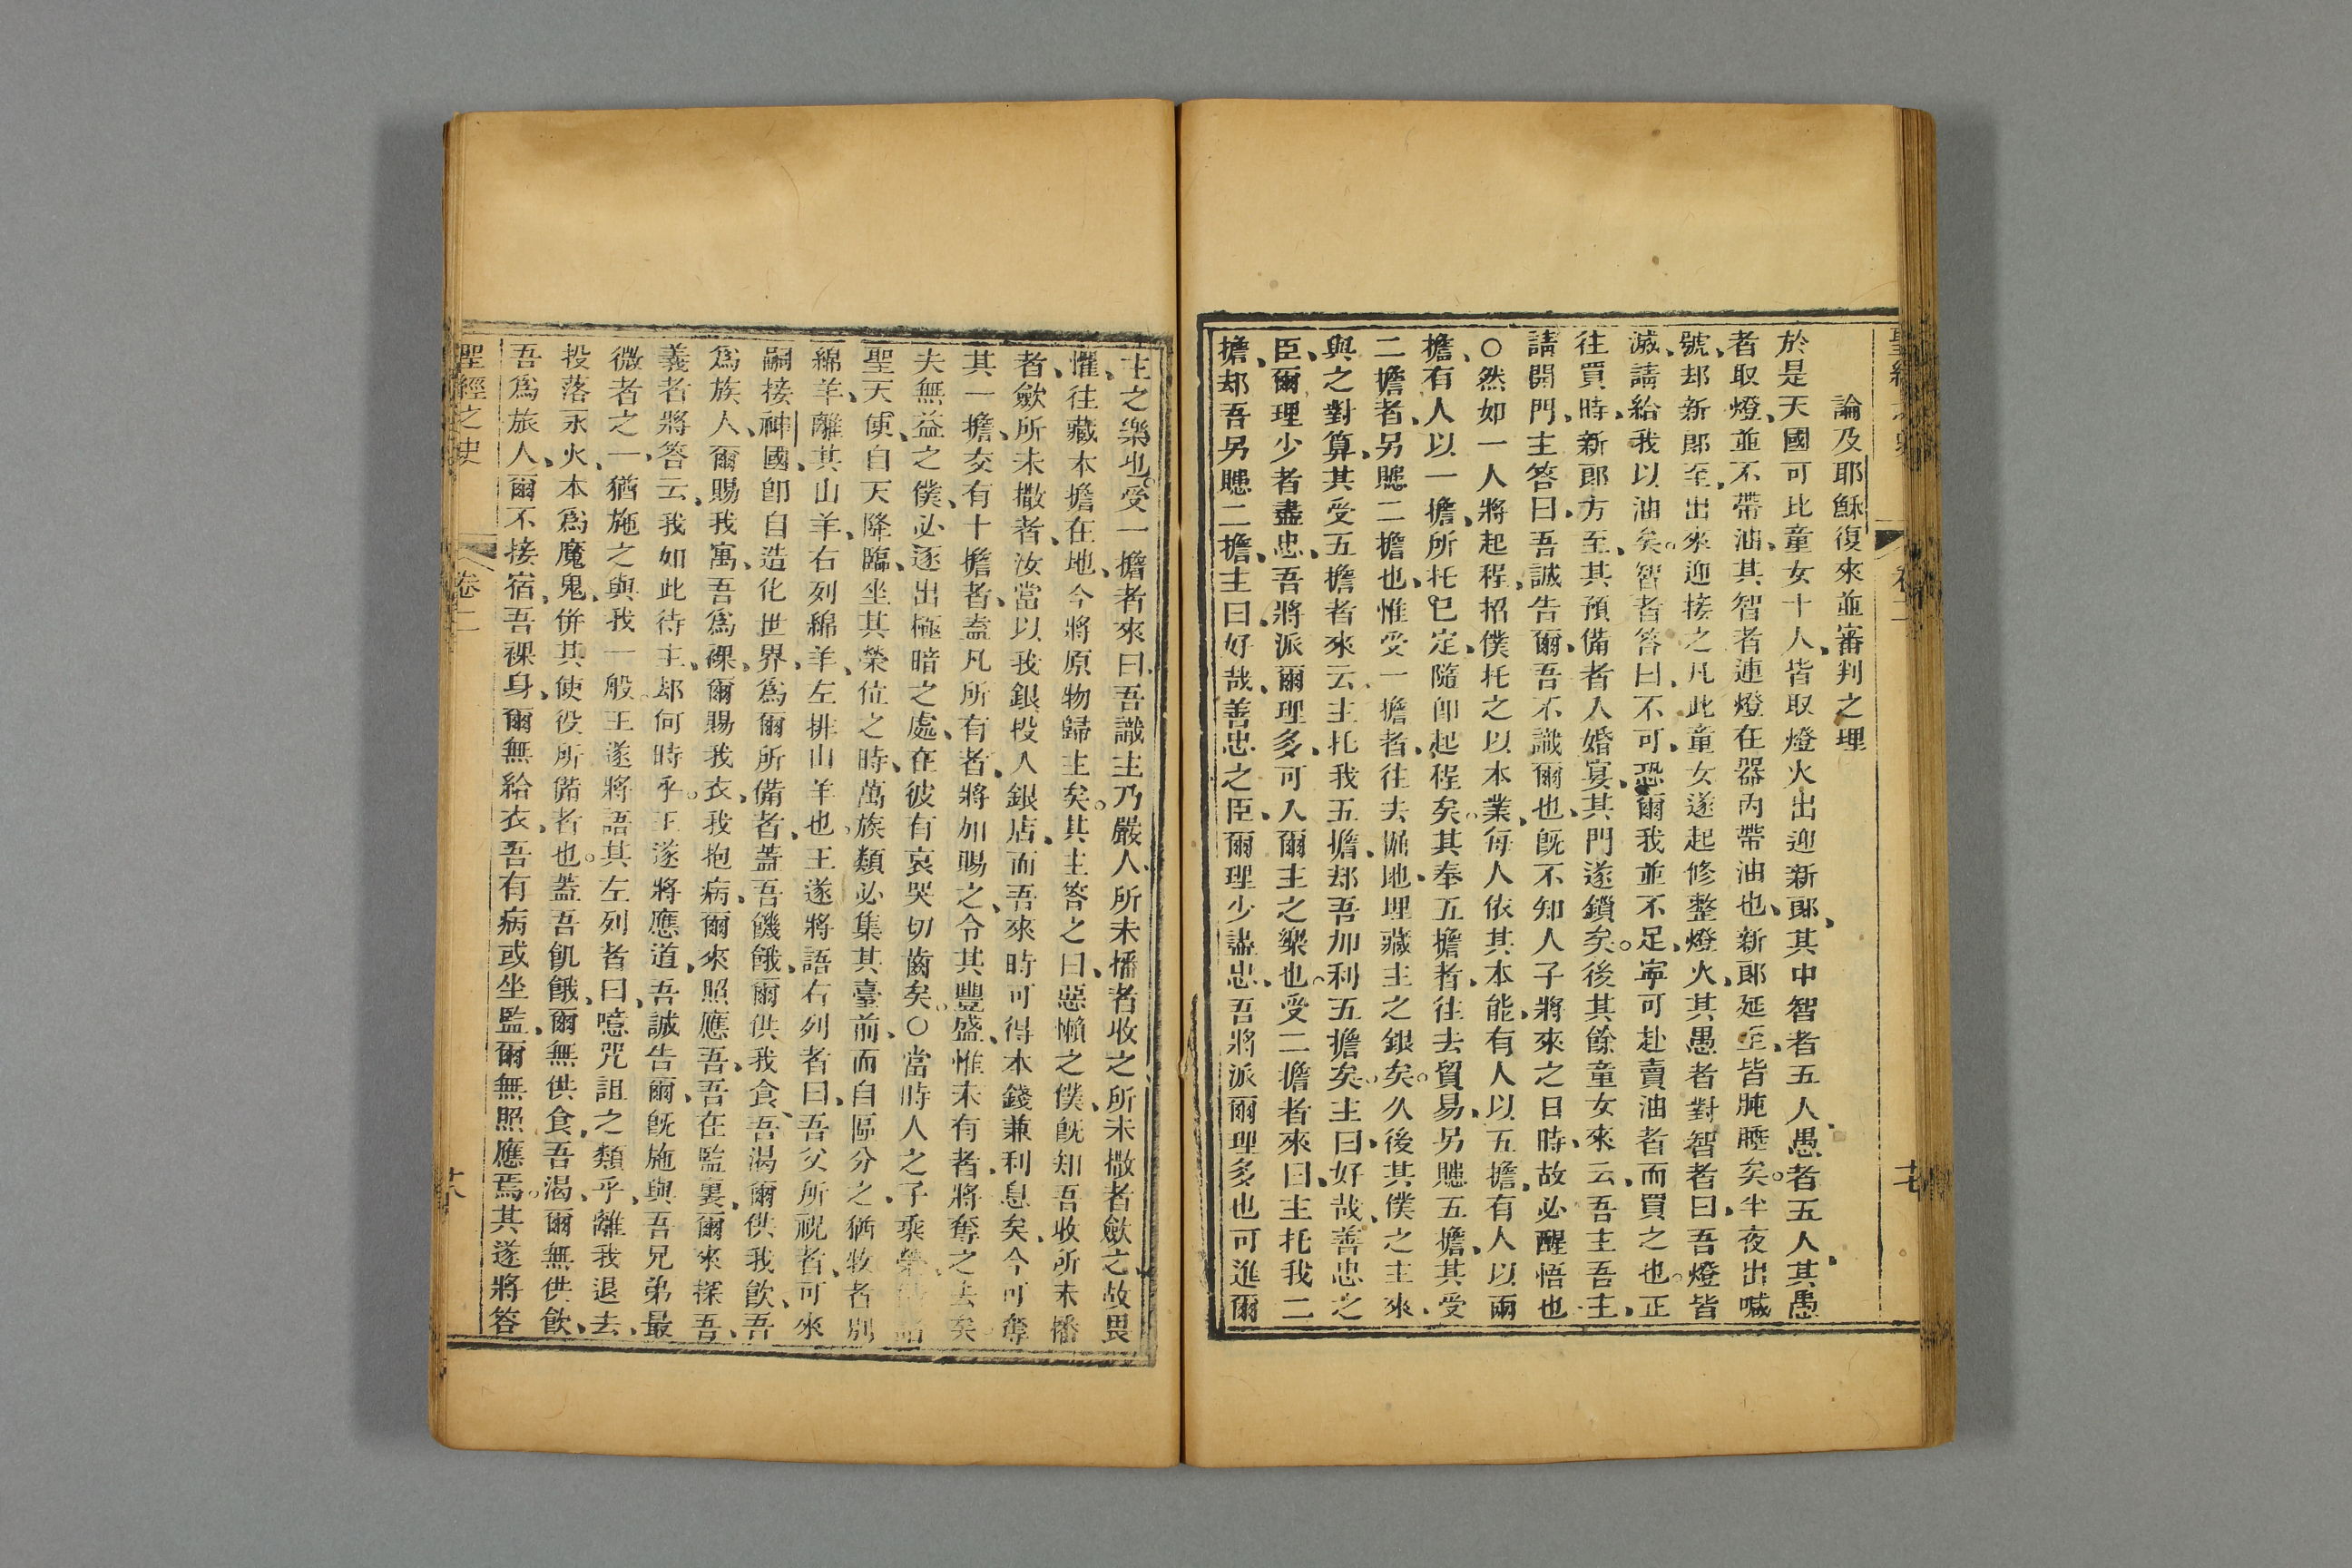 聖經之史 卷二 十七
論及耶穌復來並審判之理
於是天國可比童女十人、皆取燈火出迎新郎、其中智者五人、愚者五人、其愚
者取燈、並不帶油、其智者連燈在器內帶油也、新郎延至、皆盹睡矣。半夜出喊
號、却新郎至、出來迎接之、凡此童女遂起修整燈火、其愚者對智者曰、吾燈皆
滅、請給我以油矣。智者答曰、不可、恐爾我並不足、寧可赴賣油者而買之也。正
往買時、新郎方至、其預備者人婚宴、其門遂鎖矣。後其餘童女來云、吾主吾主、
請開門、主答曰、吾誠告爾、吾不識爾也、旣不知人子將來之日時、故必醒悟也
○然如一人將起程、招僕托之以本業、每人依其本能、有人以五擔、有人以兩
擔、有人以一擔、所托已定、隨即起程矣。其奉五擔者、往去貿易、另贃五擔、其受
二擔者、另贃二擔也、惟受一擔者、往去掘地、埋藏主之銀矣。久後其僕之主來、
與之對算、其受五擔者來云、主托我五擔、却吾加利五擔矣。主曰、好哉、善忠之
臣、爾理少者盡忠、吾將派爾理多、可入爾主之樂也。受二擔者來曰、主托我二
擔、却吾另贃二擔、主曰、好哉、善忠之臣、爾理少盡忠、吾將派爾理多也可進爾
主之樂也。受一擔者來曰、吾識主乃嚴人、所未播者收之、所未撒者歛之、故畏
懼、往藏本擔在地、今將原物歸主矣。其主答之曰、惡懶之僕、旣知吾收所未播
者、歛所未撒者、汝當以我銀投人銀店、而吾來時可得本錢兼利息矣、今可奪
其一擔、交有十擔者、蓋凡所有者、將加賜之、令其豐盛、惟未有者、將奪之去矣
夫無益之僕、必逐出極暗之處、在彼有哀哭切齒矣。○當時人之子乘榮
聖天使、自天降臨、坐其榮位之時、萬族類必集其臺前、而自區分之、猶牧者別
綿羊、離其山羊、右列綿羊、左排山羊也。王遂將語右列者曰、吾父所祝者、可來
嗣接神國、即自造化世界、爲爾所備者、蓋吾饑餓、爾供我食、吾渴爾供我飲、吾
爲族人、爾賜我寓、吾爲裸、爾賜我衣、我抱病、爾來照應吾、吾在監裏、爾來探吾、
義者將答云、我如此待主、却何時乎。王遂將應道、吾誠告爾、旣施與吾兄弟最
微者之一、猶施之與我一般。王遂將語其左列者曰、噫咒詛之類乎、離我退去、
投落永火、本爲魔鬼、併其使役所備者也。蓋吾飢餓、爾無供食、吾渴、爾無供飲、
吾爲旅人、爾不接宿、吾裸身、爾無給衣、吾有病或坐監、爾無照應焉。其遂將答
聖經之史 卷二 十八